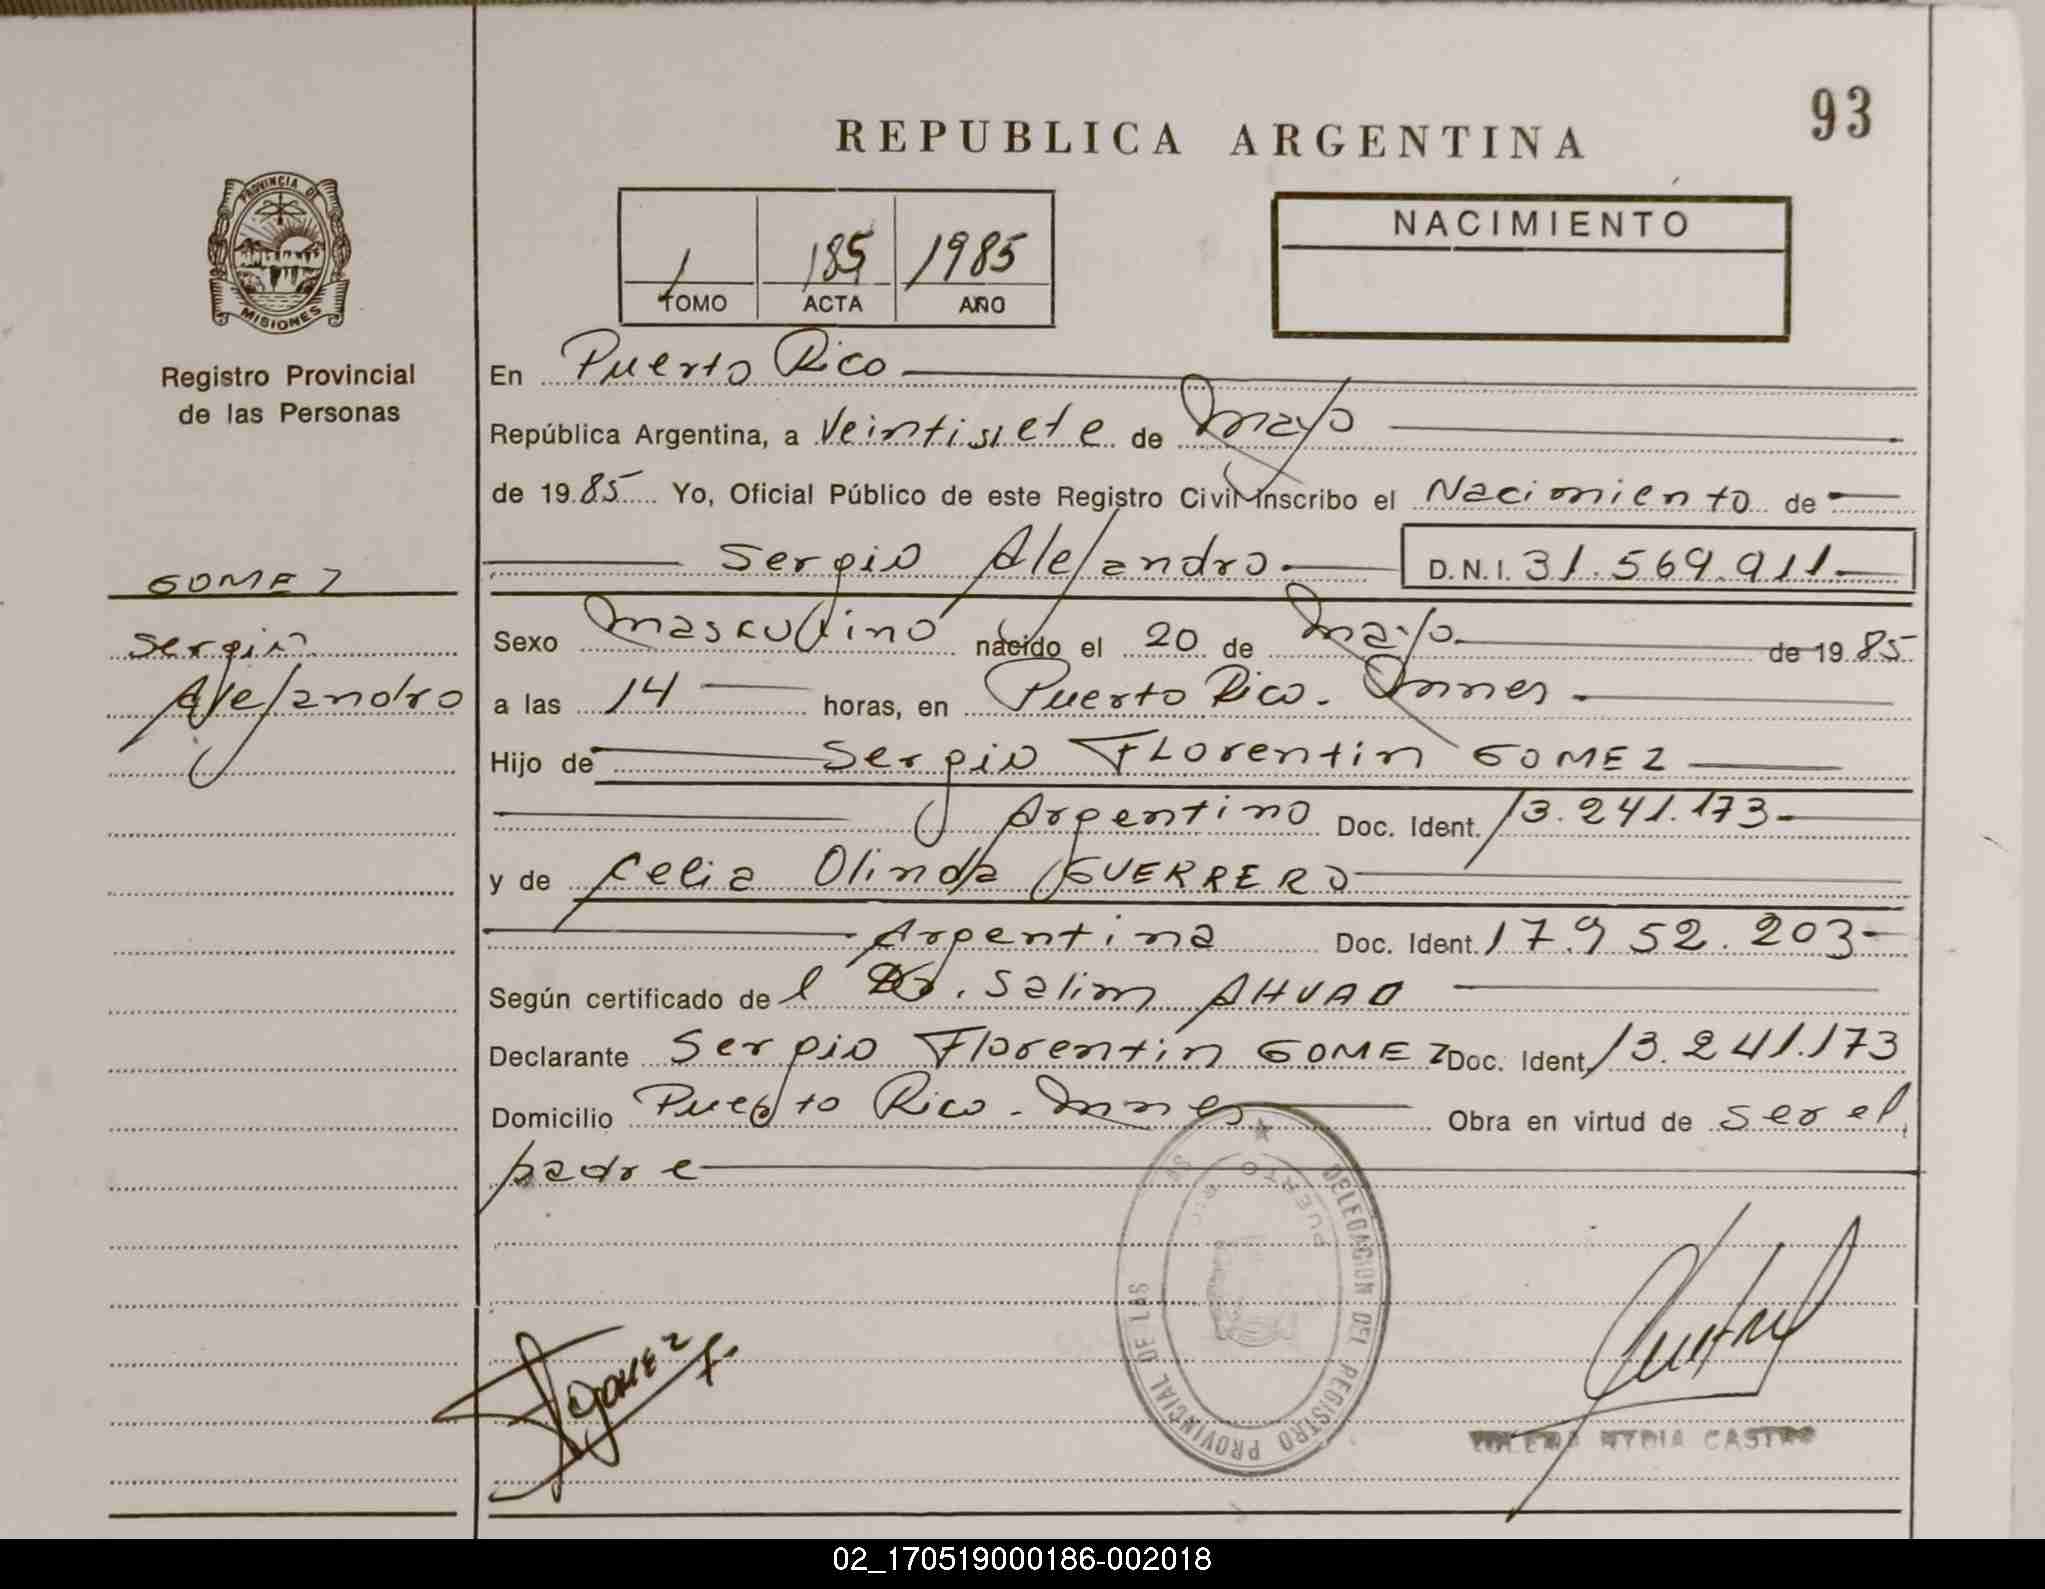 93
REPUBLICA ARGENTINA
PROVINCIA DE
MISIONES
Registro Provincial
de las Personas
1 185 1985
TOMO ACTA AÑO
NACIMIENTO
GOMEZ
Sergio
Alejandro
En Puerto Rico
República Argentina, a Veintisiete de Mayo
de 1985 Yo, Oficial Público de este Registro Civil Inscribo el Nacimiento de
Sergio Alejandro. D.N.I. 31.569.911.
Sexo Masculino nacido el 20 de Mayo de 1985
a las 14 horas, en Puerto Rico. Mnes.
Hijo de Sergio Florentin GOMEZ
Argentino Doc. Ident. 13.241.173.
y de Celia Olinda GUERRERO
Argentina Doc. Ident. 17.952.203-
Según certificado de l Dr. Salim AHUAD
Declarante Sergio Florentin GOMEZ Doc. Ident. 13.241.173
Domicilio Puerto Rico. Mnes Obra en virtud de ser el
padre
DELEGACION DEL REGISTRO PROVINCIAL DE LAS
PUERTO RICO
GOMEZ F.
CASTRO
02_170519000186-002018